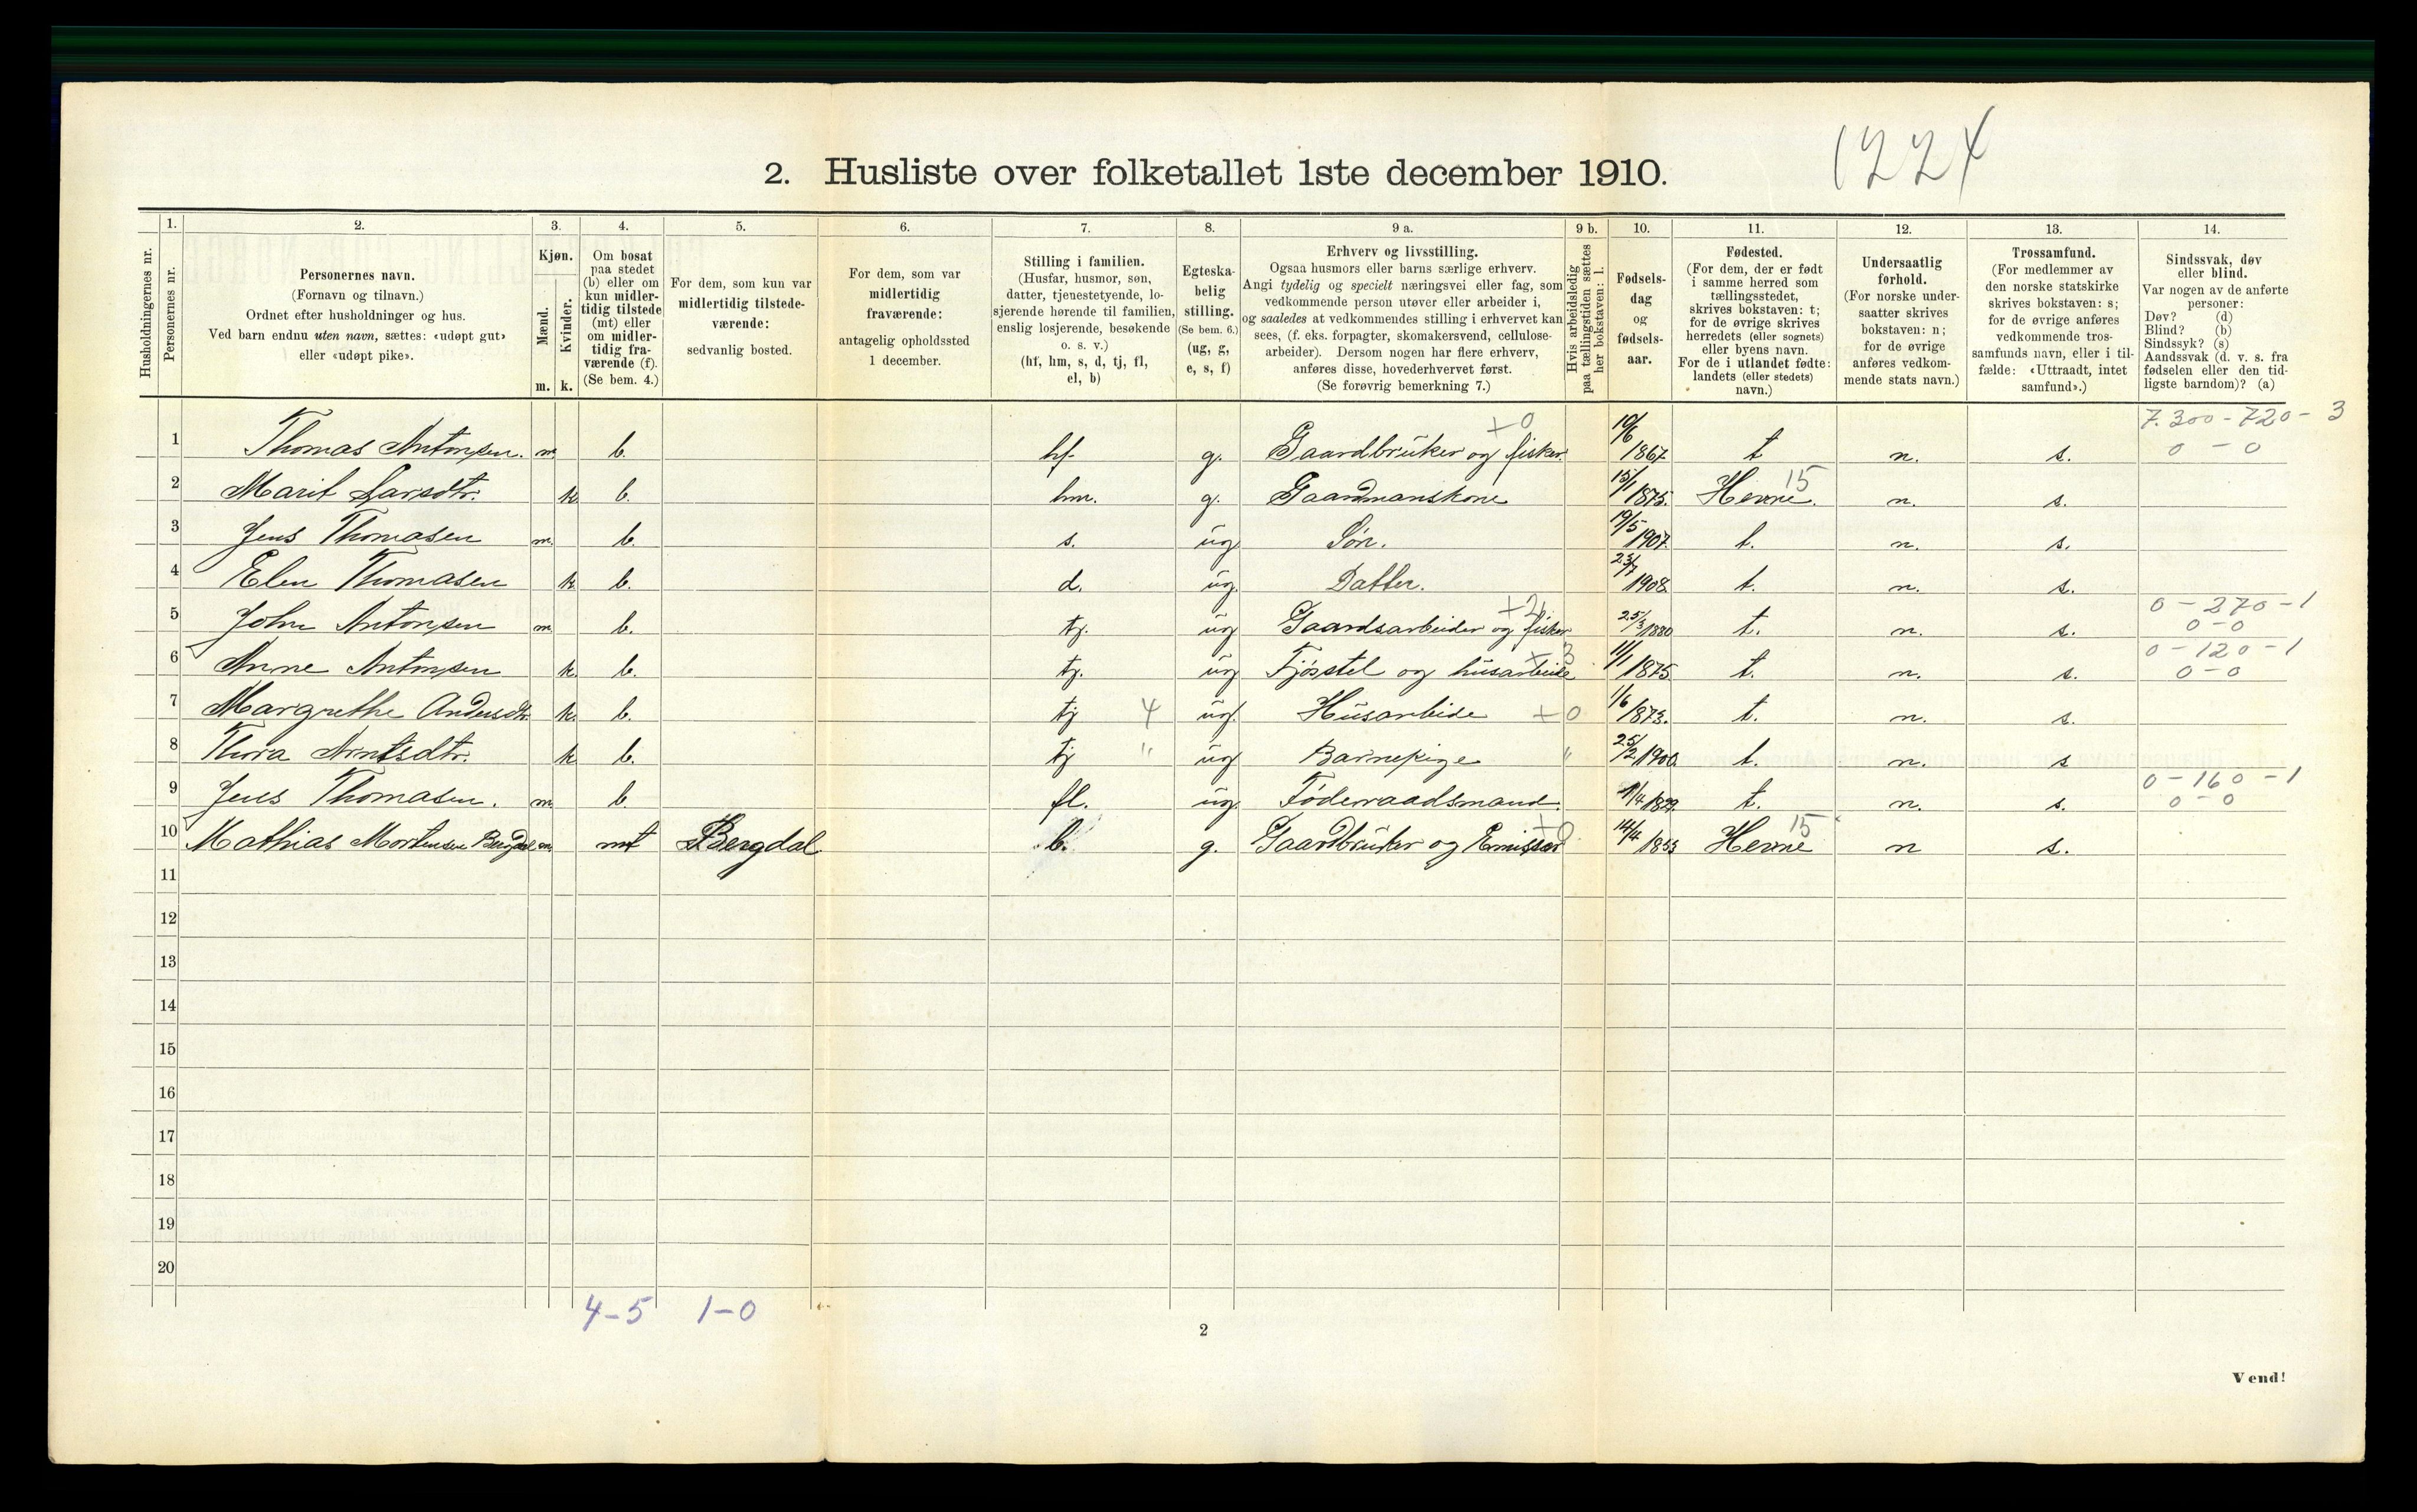 1224
2. Husliste over folketallet 1ste december 1910.
Husholdningernes nr.
1. Personernes nr.
2. Personernes navn.
(Fornavn og tilnavn.)
Ordnet efter husholdninger og hus.
Ved barn endnu uten navn, sættes: «udøpt gut»
eller «udøpt pike».
3. Kjøn.
Mænd. m.
Kvinder. k.
4. Om bosat
paa stedet
(b) eller om
kun midler-
tidig tilstede
(mt) eller
om midler-
tidig fra-
værende (f).
(Se bem. 4.)
5. For dem, som kun var
midlertidig tilstede-
værende:
sedvanlig bosted.
6. For dem, som var
midlertidig
fraværende:
antagelig opholdssted
1 december.
7. Stilling i familien.
(Husfar, husmor, søn,
datter, tjenestetyende, lo-
sjerende hørende til familien,
enslig losjerende, besøkende
o. s. v.)
(hf, hm, s, d, tj, fl,
el, b)
8. Egteska-
belig
stilling.
(Se bem. 6.)
(ug, g,
e, s, f)
9 a. Erhverv og livsstilling.
Ogsaa husmors eller barns særlige erhverv.
Angi tydelig og specielt næringsvei eller fag, som
vedkommende person utøver eller arbeider i,
og saaledes at vedkommendes stilling i erhvervet kan
sees, (f. eks. forpagter, skomakersvend, cellulose-
arbeider). Dersom nogen har flere erhverv,
anføres disse, hovederhvervet først.
(Se forøvrig bemerkning 7.)
9 b. Hvis arbeidsledig
paa tællingstiden sættes
her bokstaven: l.
10. Fødsels-
dag
og
fødsels-
aar.
11. Fødested.
(For dem, der er født
i samme herred som
tællingsstedet,
skrives bokstaven: t;
for de øvrige skrives
herredets (eller sognets)
eller byens navn.
For de i utlandet fødte:
landets (eller stedets)
navn.)
12. Undersaatlig
forhold.
(For norske under-
saatter skrives
bokstaven: n;
for de øvrige
anføres vedkom-
mende stats navn.)
13. Trossamfund.
(For medlemmer av
den norske statskirke
skrives bokstaven: s;
for de øvrige anføres
vedkommende tros-
samfunds navn, eller i til-
fælde: «Uttraadt, intet
samfund».)
14. Sindssvak, døv
eller blind.
Var nogen av de anførte
personer:
Døv? (d)
Blind? (b)
Sindssyk? (s)
Aandssvak (d. v. s. fra
fødselen eller den tid-
ligste barndom)? (a)
7.300-720-3
1 Thomas Antonsen. m b. hf. g. Gaardbruker og fisker. +0 10/6 1867 t n. s. 0-0
2 Marit Larsdtr. k b. hm. g. Gaardmanskone 15/1 1875. Hevne. 15 n. s.
3 Jens Thomasen m. b. s. ug Søn. 19/5 1907. t. n. s.
4 Elen Thomasen k b. d. ug. Datter. 23/7 1908. t. n. s.
0-270-1
5 John Antonsen m b. tj. ug Gaardsarbeider og fisker +2 25/3 1880 t. n. s. 0-0
0-120-1
6 Anne Antonsen k. b. tj. ug Fjøsstel og husarbeide +3 11/1 1875 t. n. s. 0-0
7 Margrethe Andersdtr. k. b. tj 4 ug. Husarbeide +0 1/6 1873. t. n. s.
8 Thora Arntsdtr. k b. tj " ug Barnepige " 25/2 1900. t. n. s
0-160-1
9 Jens Thomasen. m b. fl. ug. Føderaadsmand. t. n. s. 0-0
10 Mathias Mortensen Bergdal m. mt Bergdal b. g. Gaardbruker og Emissær +0 14/4 1855 Hevne 15 n s.
11
12
13
14
15
16
17
18
19
20
4-5 1-0
2
Vend!